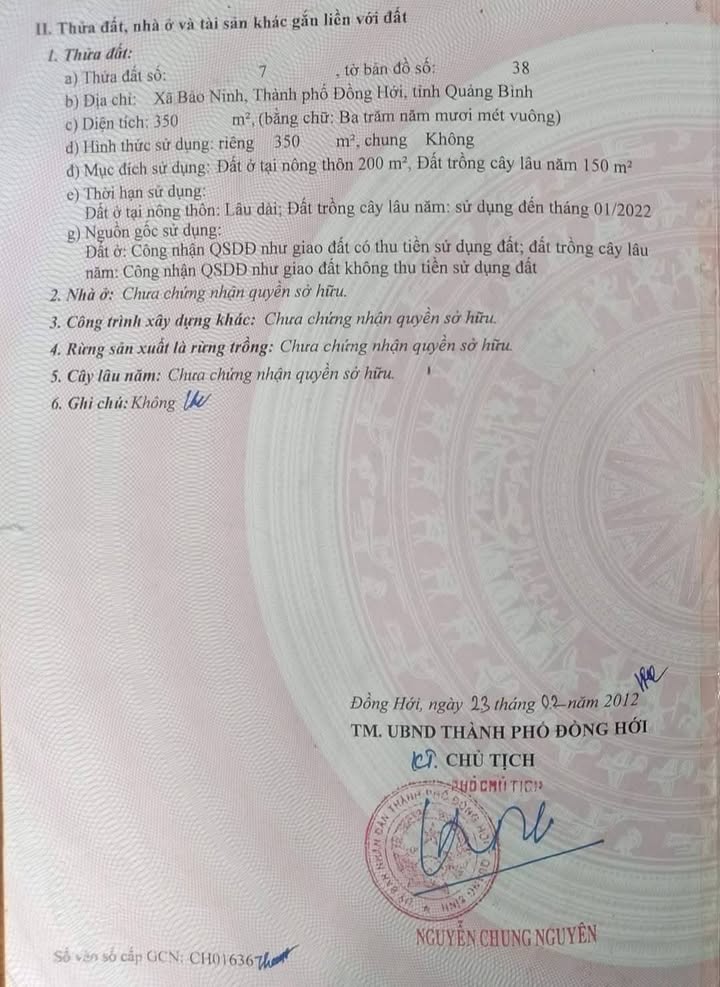 II. Thửa đất, nhà ở và tài sản khác gắn liền với đất
1. Thửa đất:
a) Thửa đất số: 7 , tờ bản đồ số: 38
b) Địa chỉ: Xã Bảo Ninh, Thành phố Đồng Hới, tỉnh Quảng Bình
c) Diện tích: 350 m², (bằng chữ: Ba trăm năm mươi mét vuông)
d) Hình thức sử dụng: riêng 350 m², chung Không
đ) Mục đích sử dụng: Đất ở tại nông thôn 200 m², Đất trồng cây lâu năm 150 m²
e) Thời hạn sử dụng:
Đất ở tại nông thôn: Lâu dài; Đất trồng cây lâu năm: sử dụng đến tháng 01/2022
g) Nguồn gốc sử dụng:
Đất ở: Công nhận QSDĐ như giao đất có thu tiền sử dụng đất; đất trồng cây lâu
năm: Công nhận QSDĐ như giao đất không thu tiền sử dụng đất
2. Nhà ở: Chưa chứng nhận quyền sở hữu.
3. Công trình xây dựng khác: Chưa chứng nhận quyền sở hữu.
4. Rừng sản xuất là rừng trồng: Chưa chứng nhận quyền sở hữu.
5. Cây lâu năm: Chưa chứng nhận quyền sở hữu.
6. Ghi chú: Không
Đồng Hới, ngày 23 tháng 02 năm 2012
TM. UBND THÀNH PHỐ ĐỒNG HỚI
KT. CHỦ TỊCH
PHÓ CHỦ TỊCH
ỦY BAN NHÂN DÂN THÀNH PHỐ ĐỒNG HỚI
QUẢNG BÌNH
NGUYỄN CHUNG NGUYÊN
Số vào sổ cấp GCN: CH01636